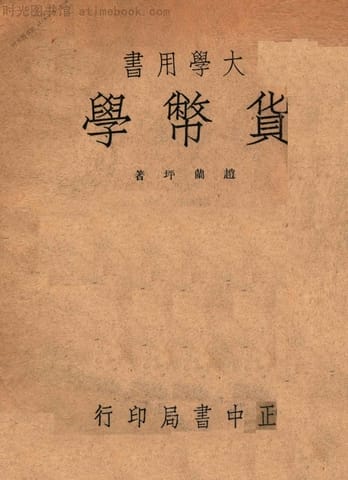 时光图书馆 atimebook.com
大學用書
貨幣學
趙蘭坪著
正中書局印行